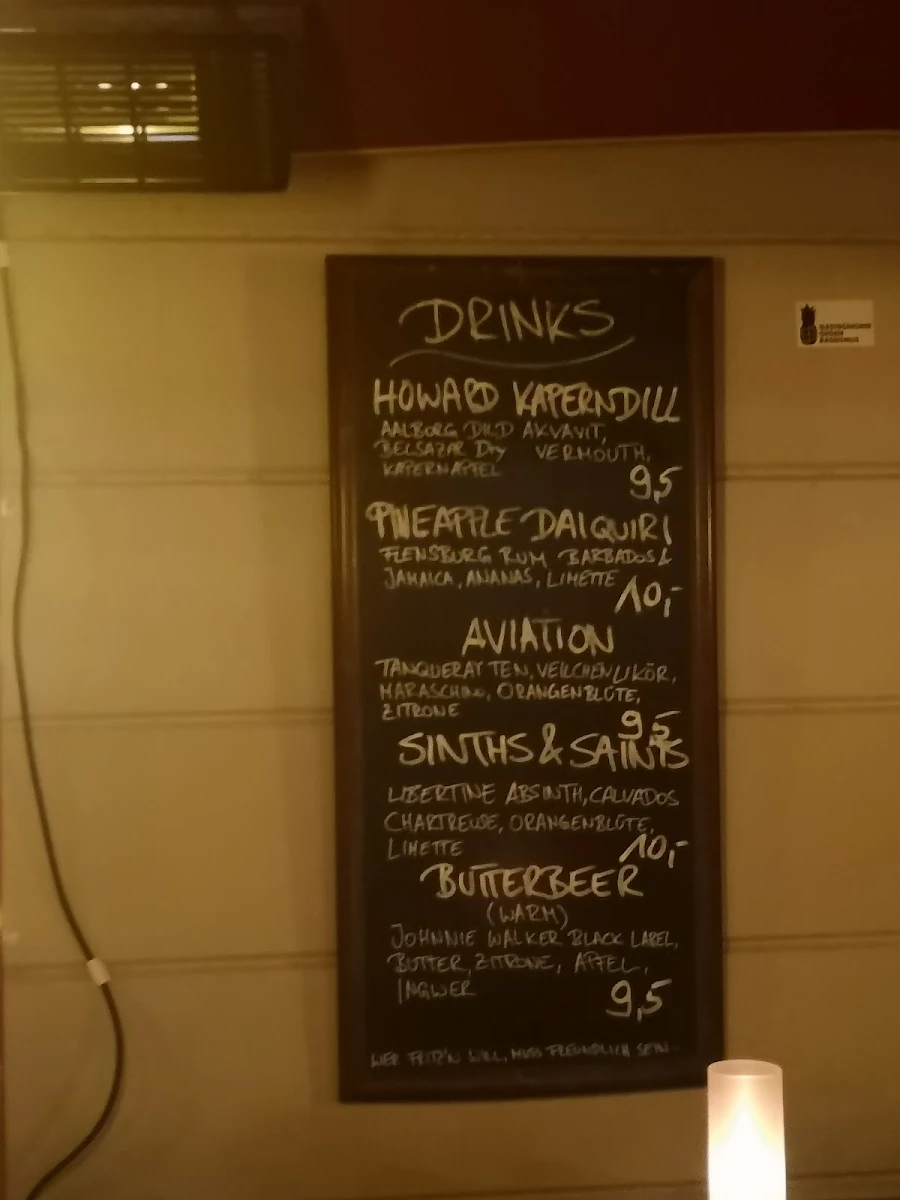 DRINKS
HOWARD KAPERNDILL
AALBORG DILD AKVAVIT,
BELSAZAR Dry VERMOUTH,
KAPERNAPFEL
9,5
PINEAPPLE DAIQUIRI
FLENSBURG RUM BARBADOS &
JAMAICA, ANANAS, LIMETTE
10,-
AVIATION
TANQUERAY TEN, VEILCHENLIKÖR,
MARASCHINO, ORANGENBLÜTE,
ZITRONE
9,5
SINTHS & SAINTS
LIBERTINE ABSINTH, CALVADOS
CHARTREUSE, ORANGENBLÜTE,
LIMETTE
10,-
BUTTERBEER
(WARM)
JOHNNIE WALKER BLACK LABEL,
BUTTER, ZITRONE, APFEL,
INGWER
9,5
WER FRITZ'N WILL, MUSS FREUNDLICH SEIN
GASTRONOMIE
GEGEN
RASSISMUS